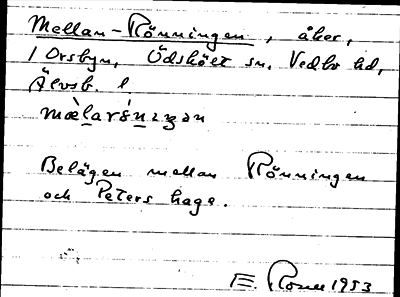 Mellan-Rönningen, åker,
i Orsbyn, Ödskölt sn, Vedbo hd,
Älvsb. l.
Belägen mellan Rönningen
och Peters hage.
E. 1953